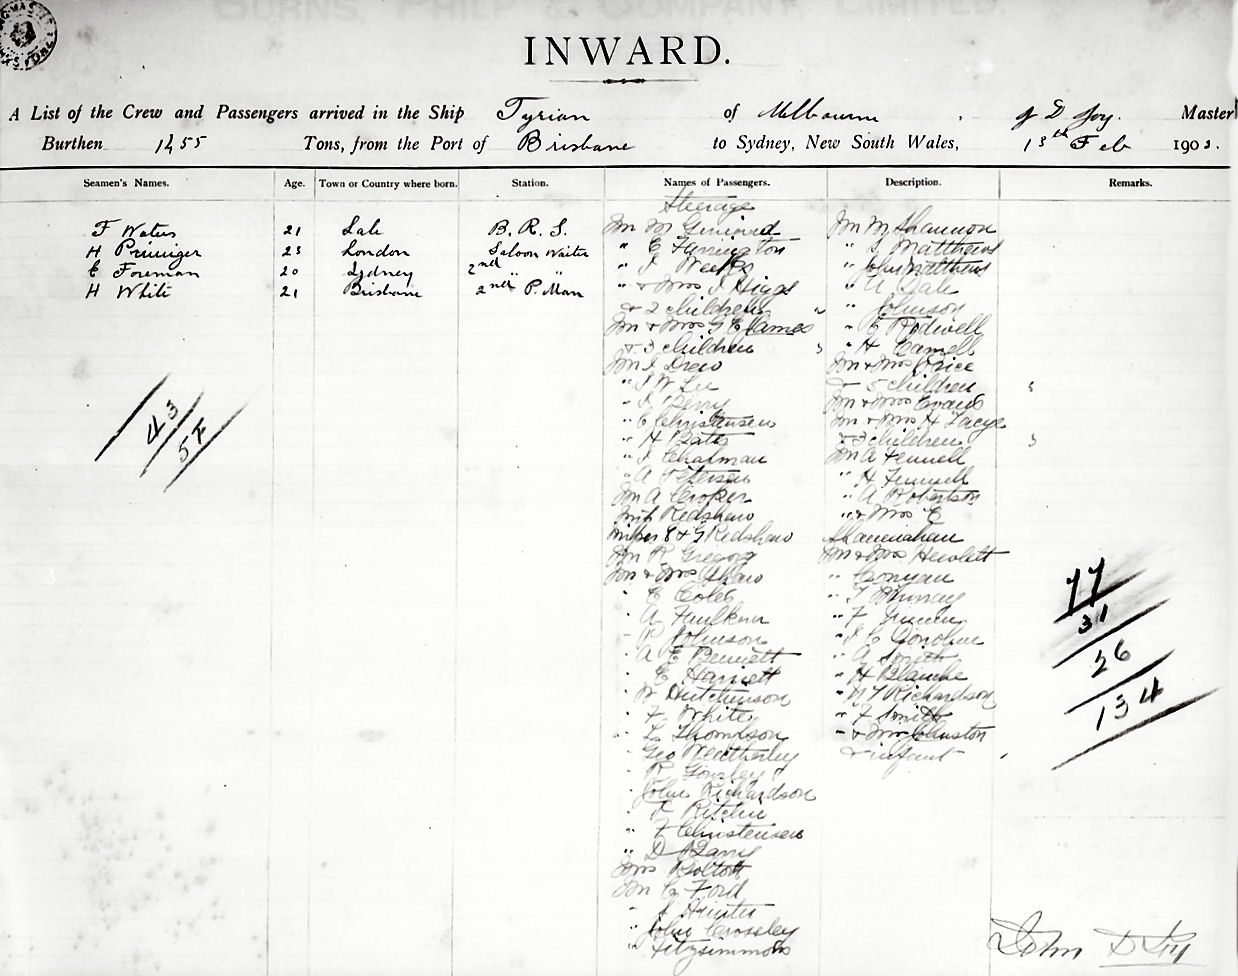 INWARD.
A List of the Crew and Passengers arrived in the Ship Tyrian of Melbourne, J D Joy. Master
Burthen 1455 Tons, from the Port of Brisbane to Sydney, New South Wales, 13th Feb 1903.
Seamen's Names. Age. Town or Country where born. Station. Names of Passengers. Description. Remarks.
Steerage
F Waters 21 Sale B. R. S.
H 23 London Saloon Waiter
E Foreman 20 Sydney 2nd " "
H White 21 Brisbane 2nd P. Man
43
57
Mr M
" E Farrington
" J Weekes
" & Mrs J Higgs
& 2 children
Mr & Mrs G E James
& 3 children
Mr J Drew
" J W Lee
" J Berry
" E Christensen
" H Bates
" J Chapman
" A Petersen
Mr A Cropper
Redshaw
Misses E & G Redshaw
Mr R Gregory
Mr & Mrs Shaw
" E Coles
" A Faulkner
" P Johnson
" A E Bennett
" E Harriett
" W Hutchinson
" F White
" L Thompson
" Geo Weatherley
" R
" John Richardson
" Ritchie
" F Christensen
" D
Mrs Bolton
Mr C Ford
" J Hunter
" John Crossley
" Fitzsimmons
Mr M Shannon
" S Matthews
" John Matthews
" A Dale
" Johnson
" E Rodwell
" H Camell
Mr & Mrs Price
& 5 children
Mr & Mrs Evans
Mr & Mrs H Lacye
& 3 children
Mr A Fennell
" H Fennell
" A Robertson
" & Mrs E
Shannahan
Mr & Mrs Hewlett
" Conyau
" J Murray
" F
" J E Donohue
" A Smith
" H Blanche
" N J Richardson
" F Smith
" & Mrs Johnston
& infant
77
31
26
134
John D Joy